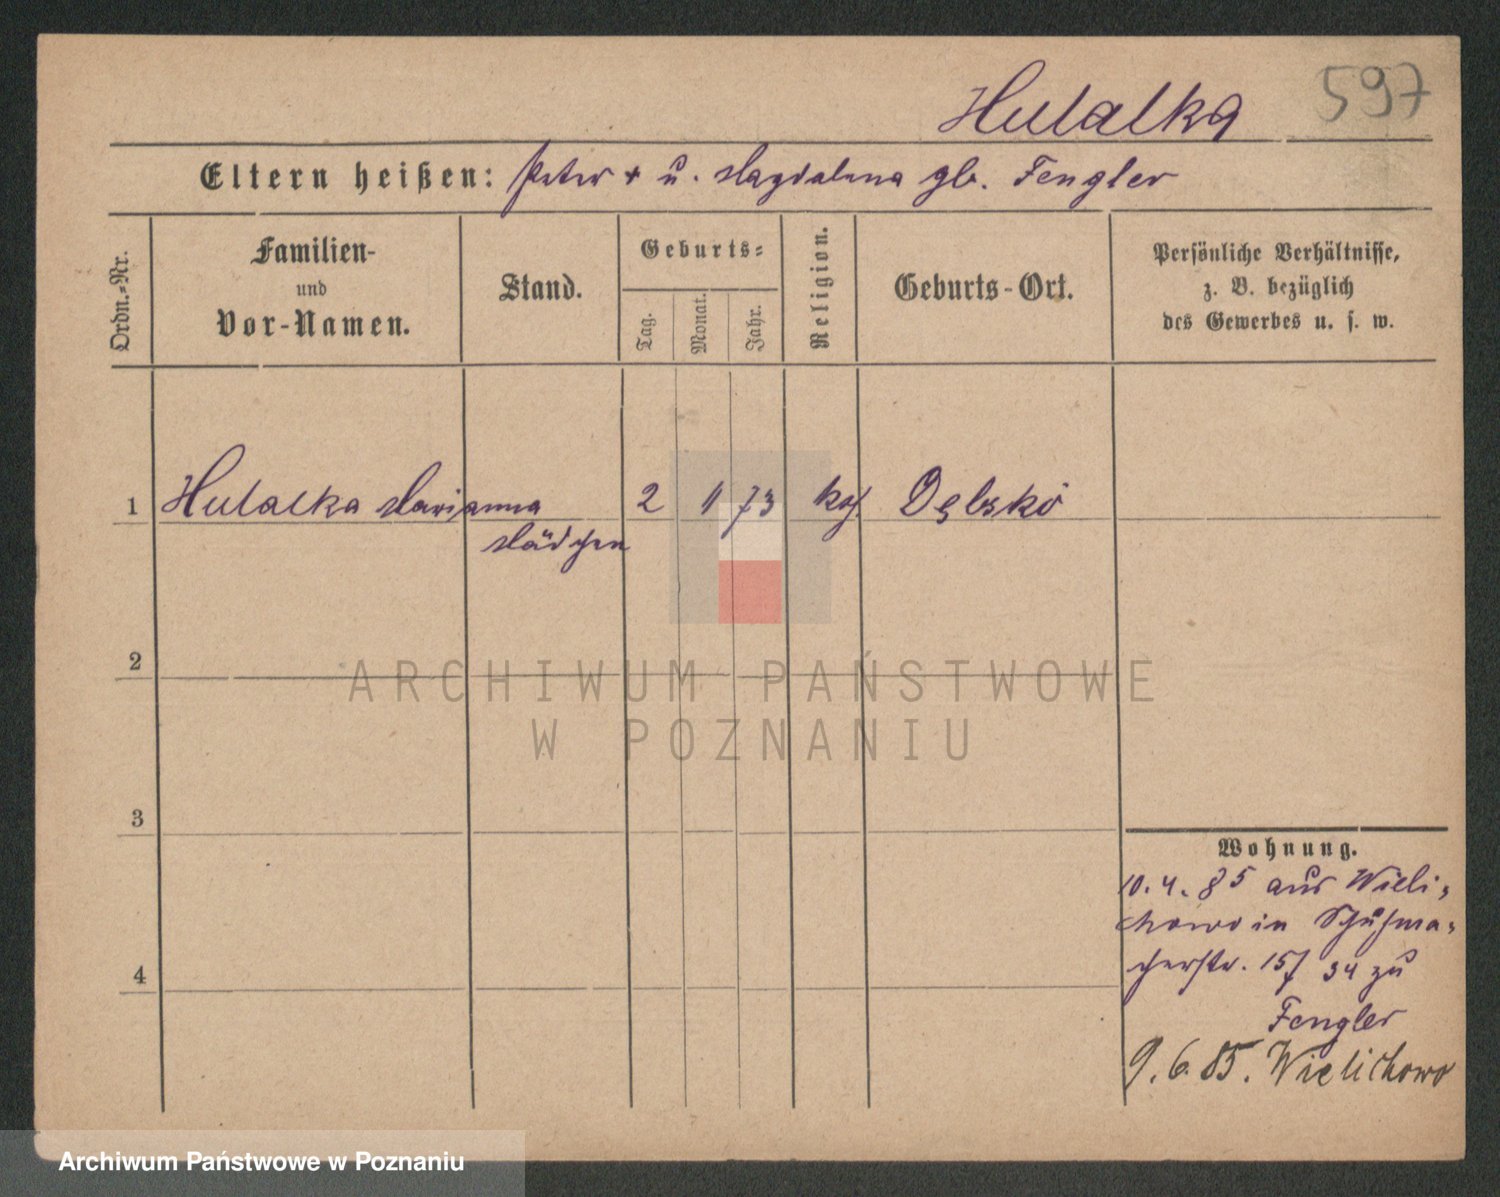 Hulalka 597
Eltern heißen: Peter + u. Magdalena gb. Fengler
Ordn.-Nr.
Familien-
und
Vor-Namen.
Stand.
Geburts-
Tag.
Monat.
Jahr.
Religion.
Geburts-Ort.
Persönliche Verhältnisse,
z. B. bezüglich
des Gewerbes u. s. w.
1 Hulalka Marianna 2 11 73 kath.
Mädchen
2
3
4
Wohnung.
10. 4. 85 aus Wieli-
chowo in Schuhma-
cherstr. 34 zu
Fengler
9. 6. 85. Wielichowo
ARCHIWUM PAŃSTWOWE
W POZNANIU
Archiwum Państwowe w Poznaniu